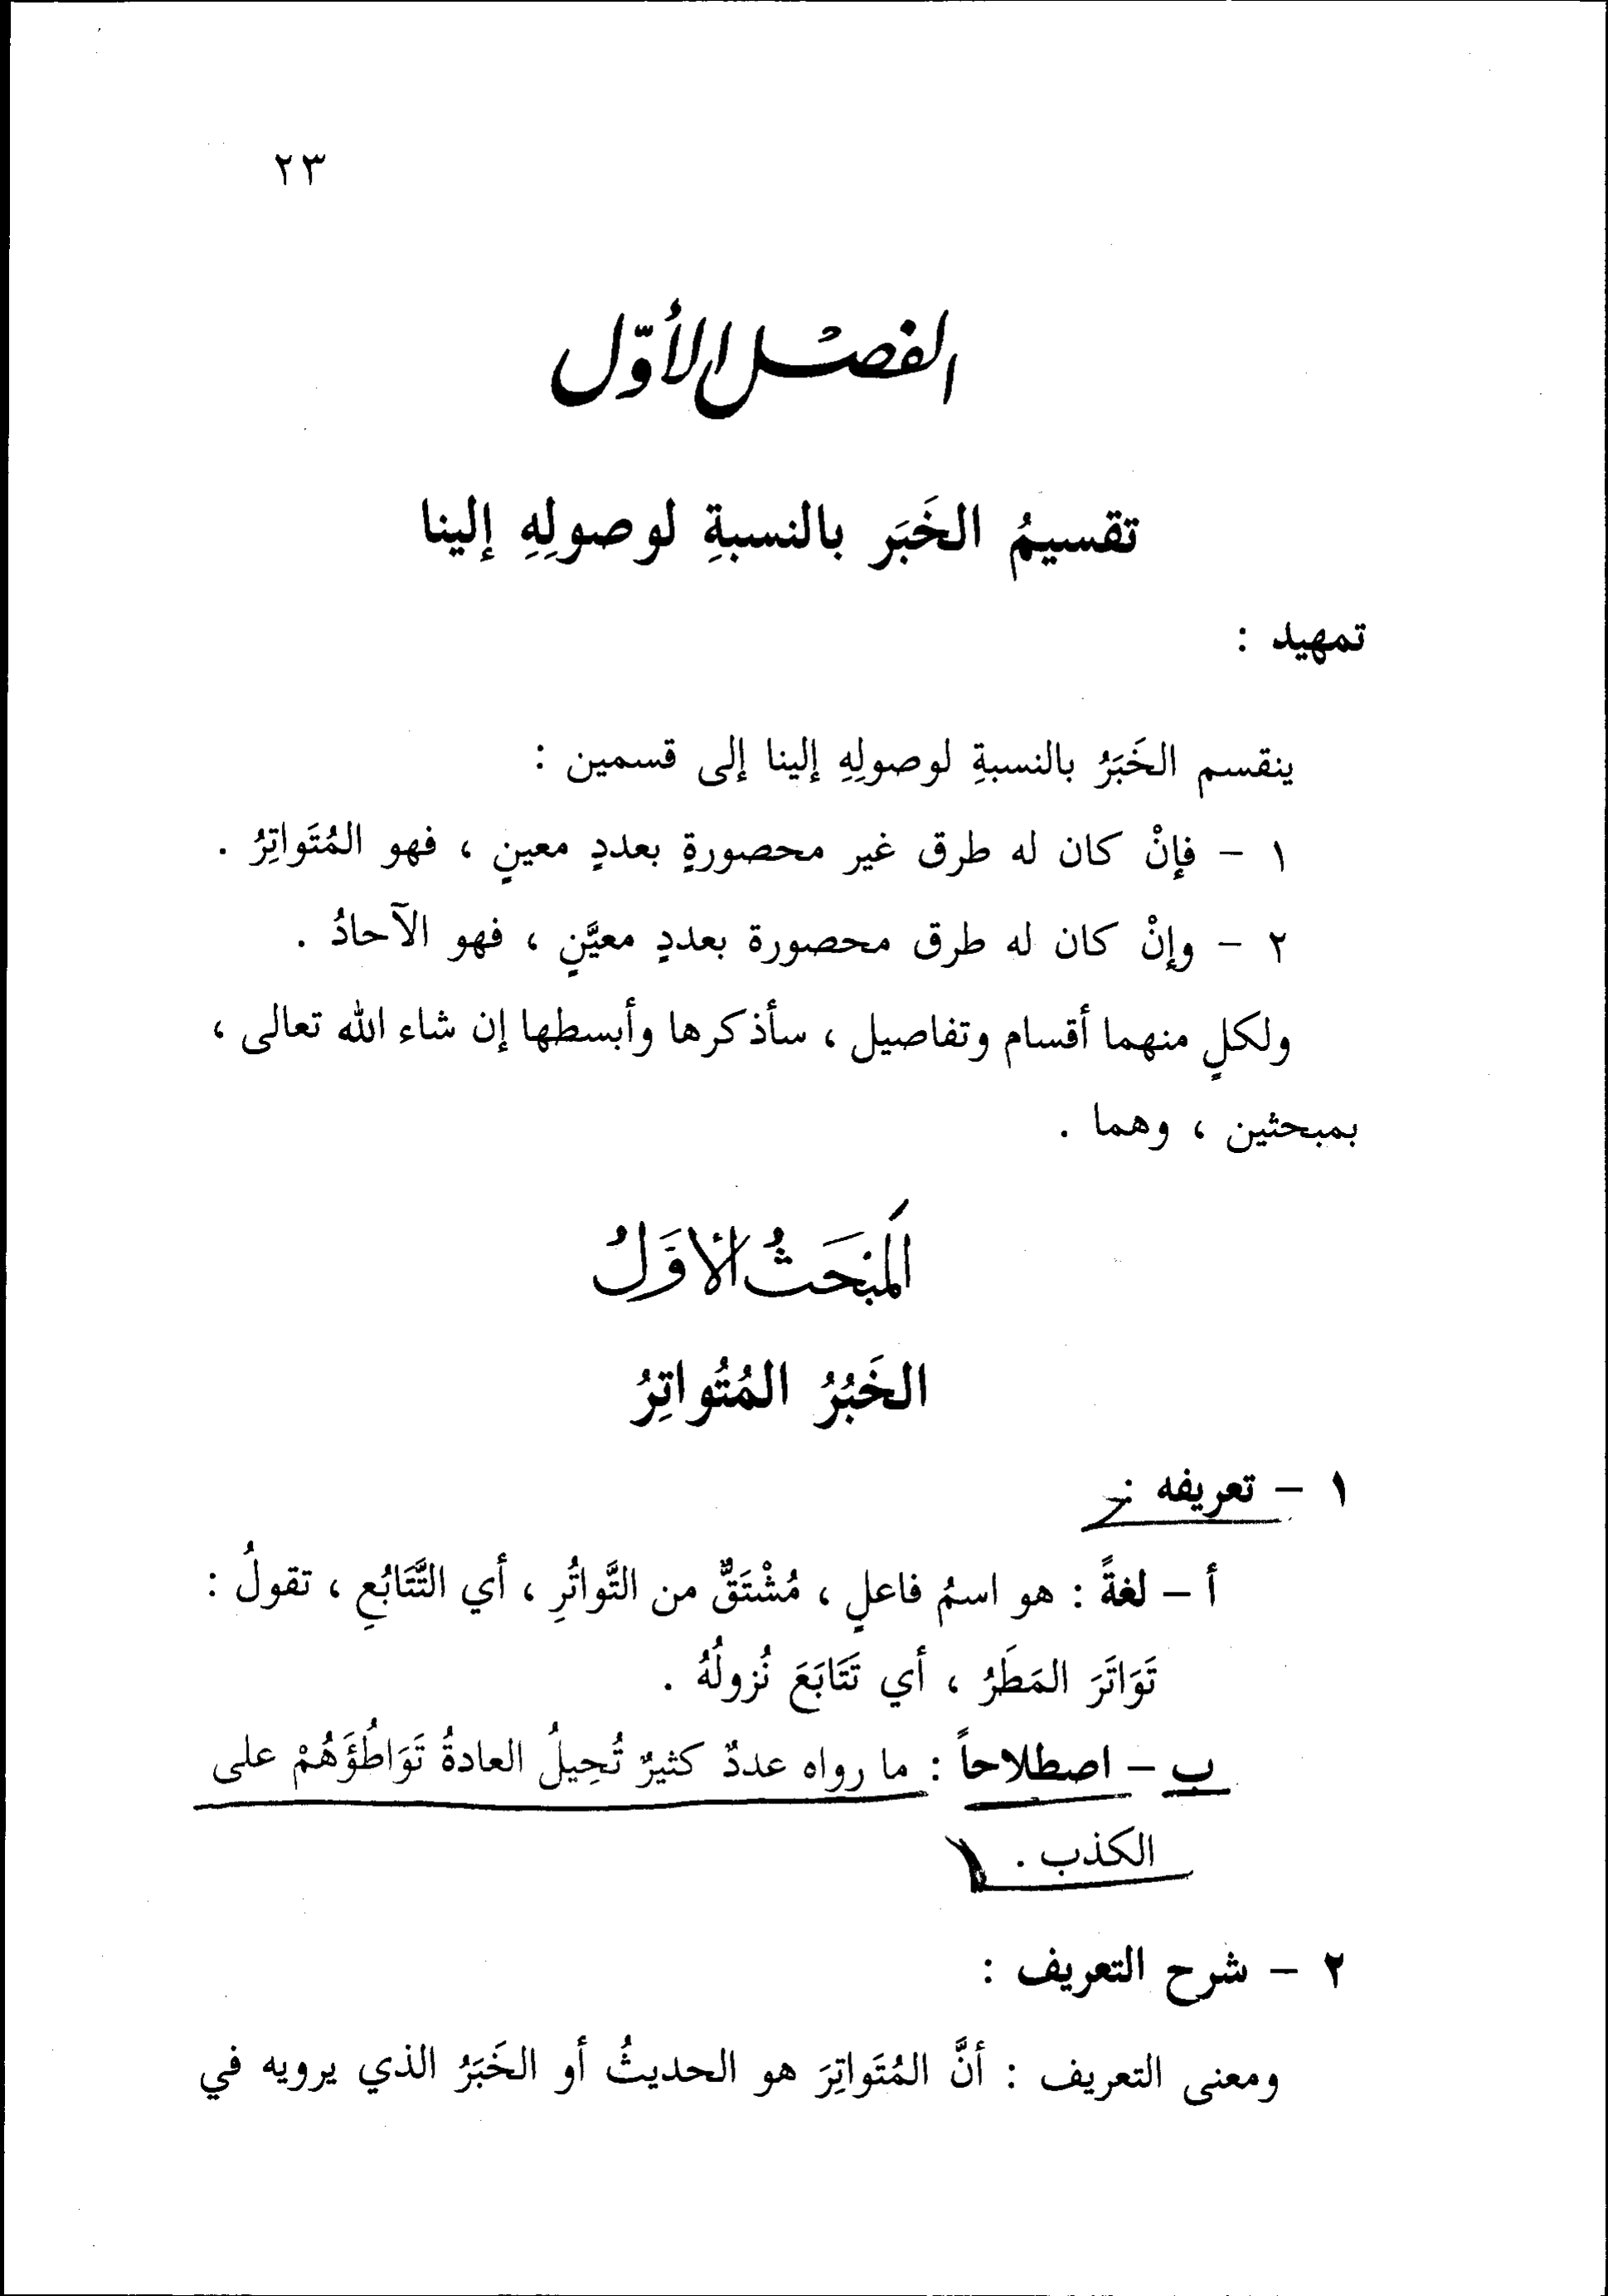 ٢٣
الفصل الأوّل
تقسيمُ الخَبَر بالنسبةِ لوصولِهِ إلينا
تمهيد :
ينقسم الخَبَرُ بالنسبةِ لوصولِهِ إلينا إلى قسمين :
١ – فإنْ كان له طرق غير محصورةٍ بعددٍ معينٍ ، فهو المُتَواتِرُ .
٢ – وإنْ كان له طرق محصورة بعددٍ معيَّنٍ ، فهو الآحادُ .
ولكلٍ منهما أقسام وتفاصيل ، سأذكرها وأبسطها إن شاء الله تعالى ،
بمبحثين ، وهما .
المَبْحَثُ الأوَلُ
الخَبُرُ المُتُواتِرُ
١ – تعريفه :
أ – لغةً : هو اسمُ فاعلٍ ، مُشْتَقٌّ من التَّواتُرِ ، أي التَّتَابُعِ ، تقولُ :
تَوَاتَرَ المَطَرُ ، أي تَتَابَعَ نُزولُهُ .
ب – اصطلاحاً : ما رواه عددٌ كثيرٌ تُحِيلُ العادةُ تَوَاطُؤَهُمْ على
الكذب .
٢ – شرح التعريف :
ومعنى التعريف : أنَّ المُتَواتِرَ هو الحديثُ أو الخَبَرُ الذي يرويه في